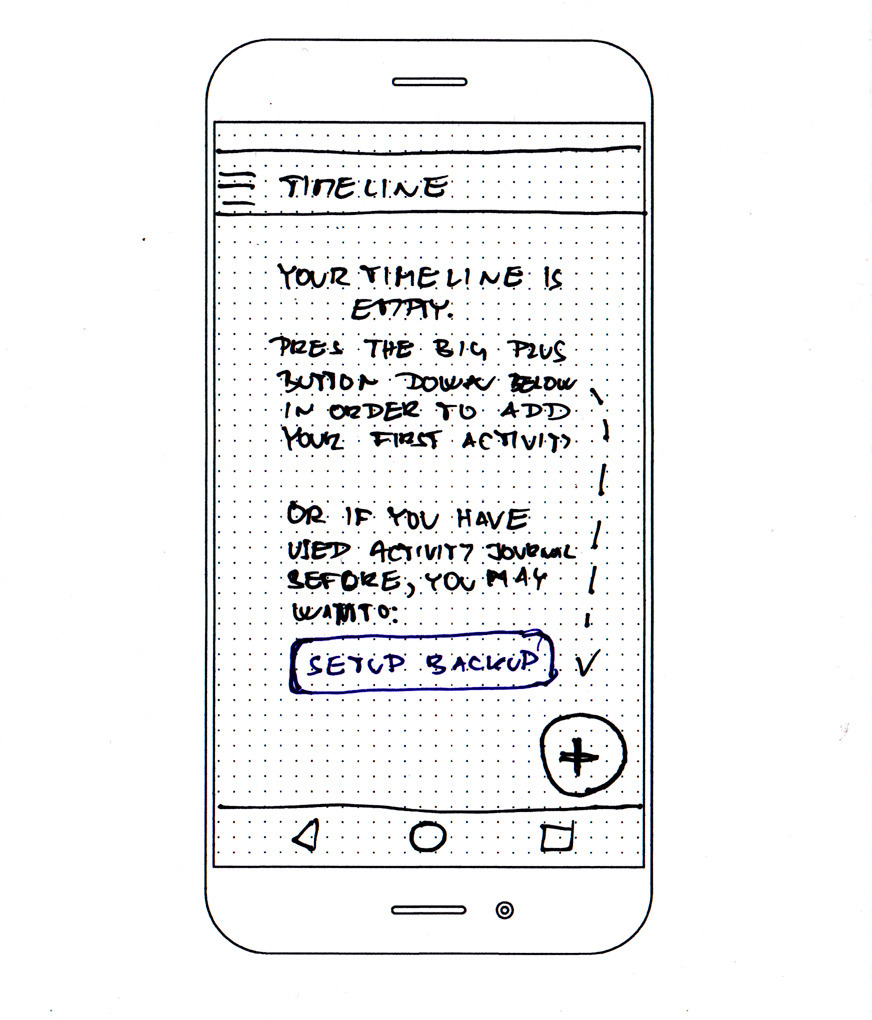 TIMELINE
YOUR TIMELINE IS
EMPTY.
PRES THE BIG PLUS
BUTTON DOWN BELOW
IN ORDER TO ADD
YOUR FIRST ACTIVITY
OR IF YOU HAVE
USED ACTIVITY JOURNAL
BEFORE, YOU MAY
WANT TO:
SETUP BACKUP